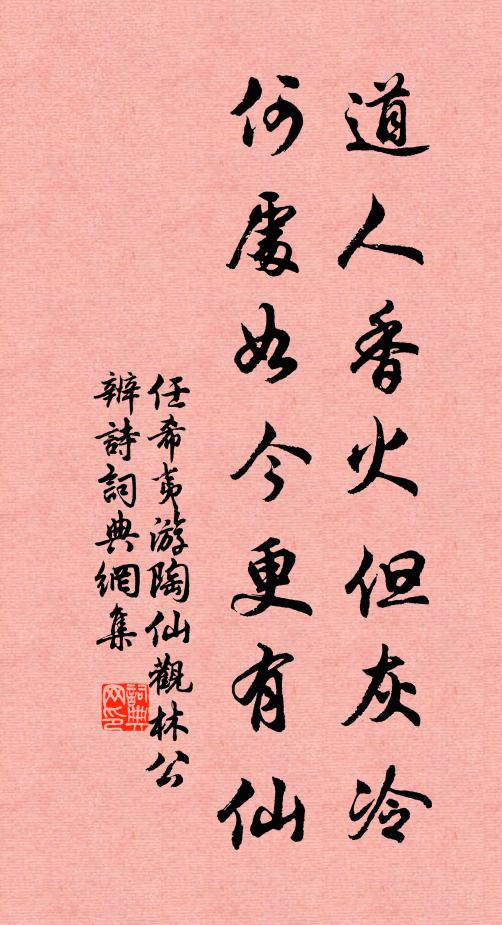 道人香火但灰冷
何處如今更有仙
任希夷游陶仙觀林公
辨詩詞典網集
詞典網印